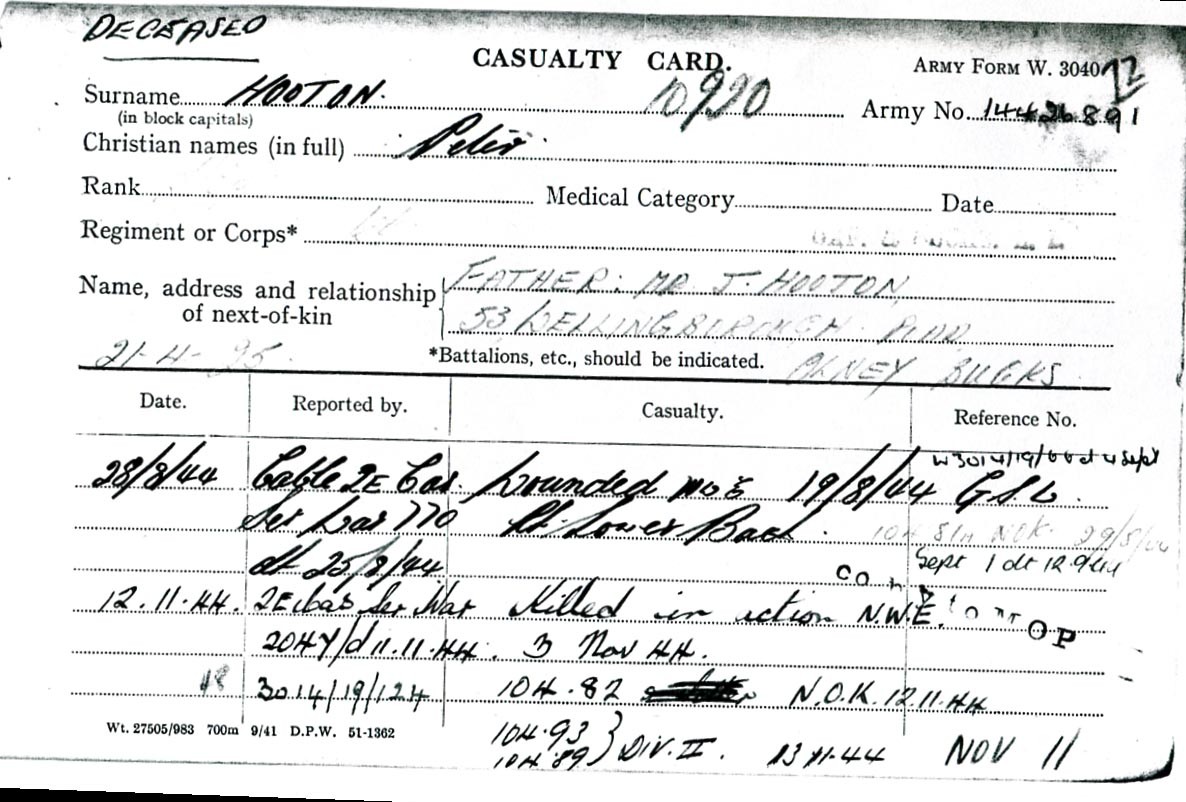 DECEASED
CASUALTY CARD.
ARMY FORM W. 3040
Surname HOOTON. 10920 Army No. 14426891
(in block capitals)
Christian names (in full) Peter
Rank Medical Category Date
Regiment or Corps*
Name, address and relationship of next-of-kin
FATHER: MR J. HOOTON
53 WELLINGBOROUGH ROAD
OLNEY BUCKS
21-4-25
*Battalions, etc., should be indicated.
Date. Reported by. Casualty. Reference No.
28/8/44 Cable 2E Cas. Wounded 19/8/44 G.S.W.
Ser War 770 Rt. Lower Back.
dt 25/8/44 Sept 1 dt 12.9.44
12.11.44. 2E Cas Ser War Killed in action N.W.E.
2047/d 11.11.44. 3 Nov 44.
3014/19/124 104.82 N.O.K. 12.11.44
Wt. 27505/983 700m 9/41 D.P.W. 51-1362
104.93
104.89 } DIV. II. 13 11.44 NOV 11